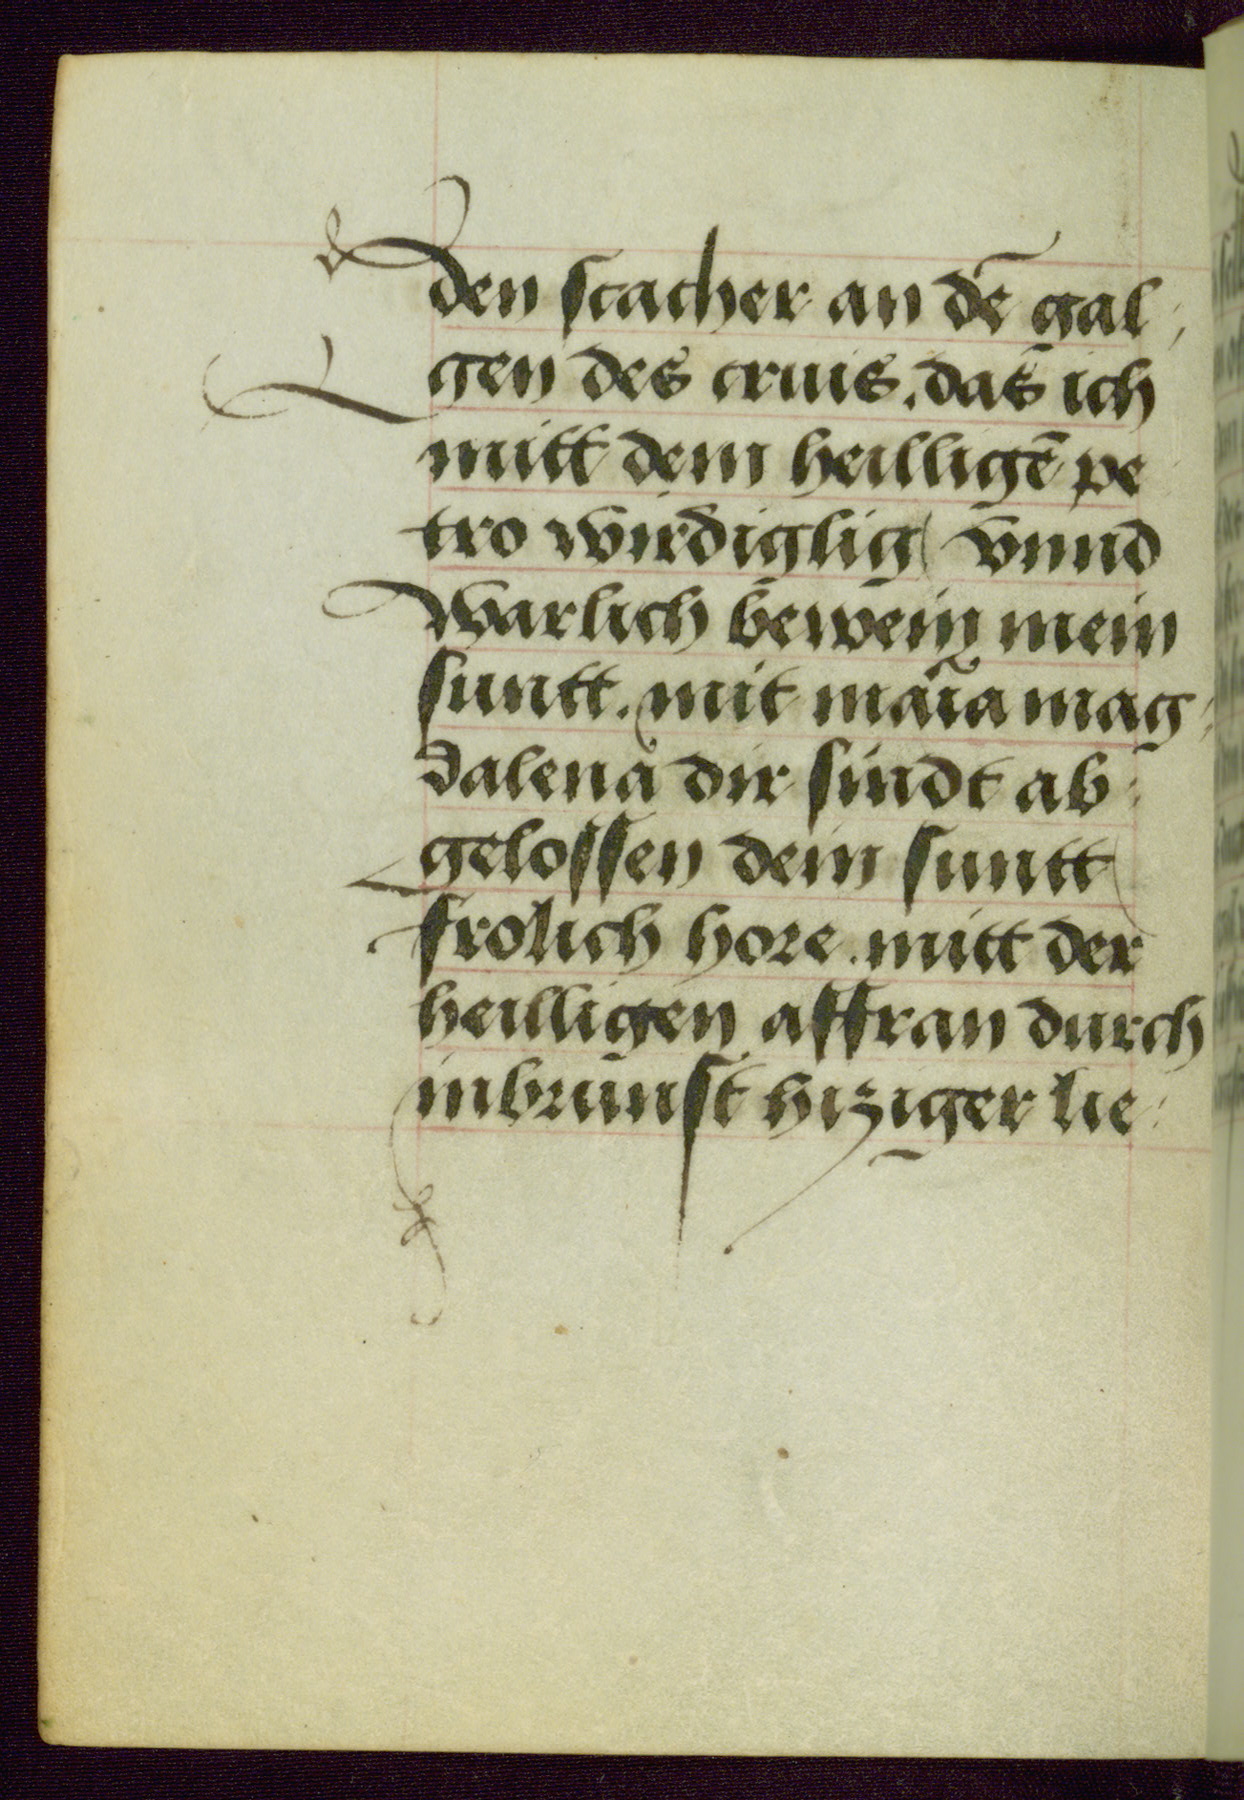 den scacher an dē gal,
gen des cruis. das ich
mitt dem heilligē pe
tro wirdiglig( vnnd
warlich bewein mein
suntt. mit maria mag:
dalena dir sindt ab:
gelossen dein suntt(
frolich hore. mitt der
heilligen affran durch
inbrunst hiziger lie: